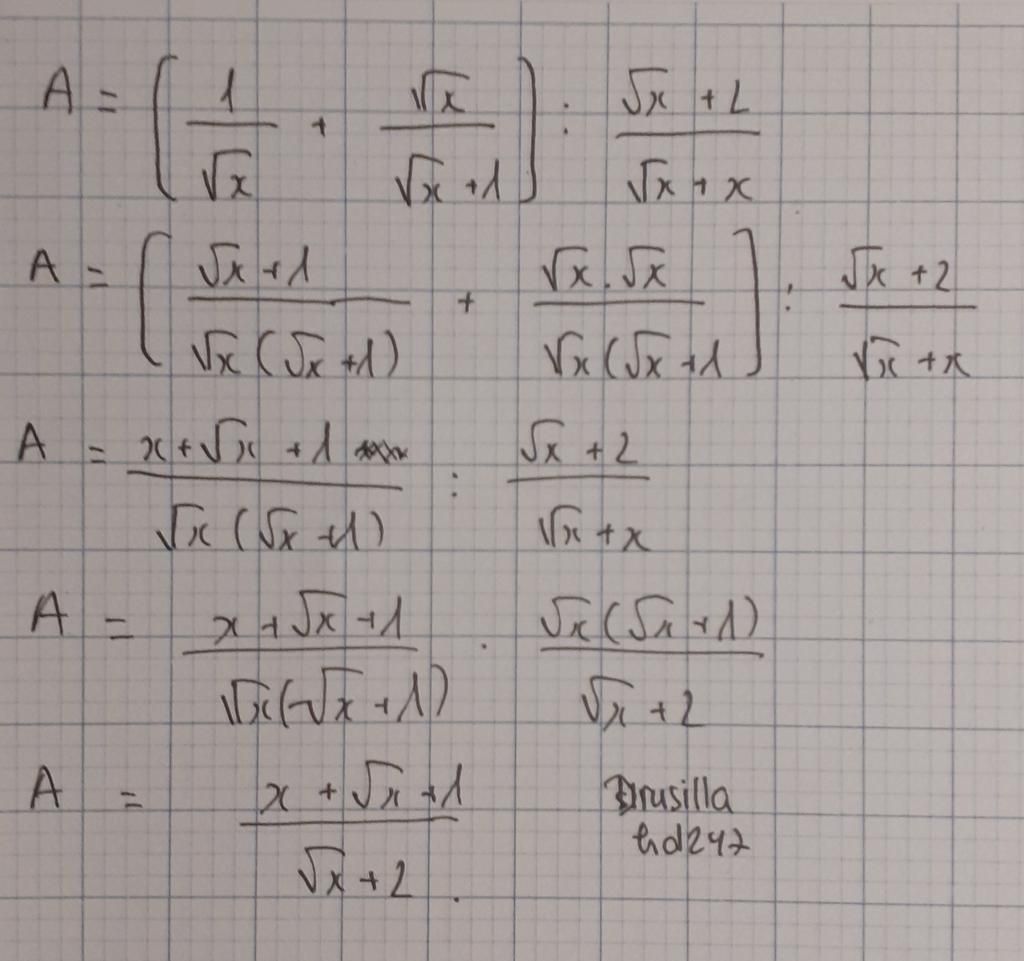 A = [ 1/√x + √x/(√x + 1) ] : (√x + 2)/(√x + x)
A = [ (√x + 1)/(√x (√x + 1)) + (√x . √x)/(√x (√x + 1) ] : (√x + 2)/(√x + x)
A = (x + √x + 1)/(√x (√x + 1)) : (√x + 2)/(√x + x)
A = (x + √x + 1)/(√x (√x + 1)) . (√x (√x + 1))/(√x + 2)
A = (x + √x + 1)/(√x + 2) .
Drusilla
hd247